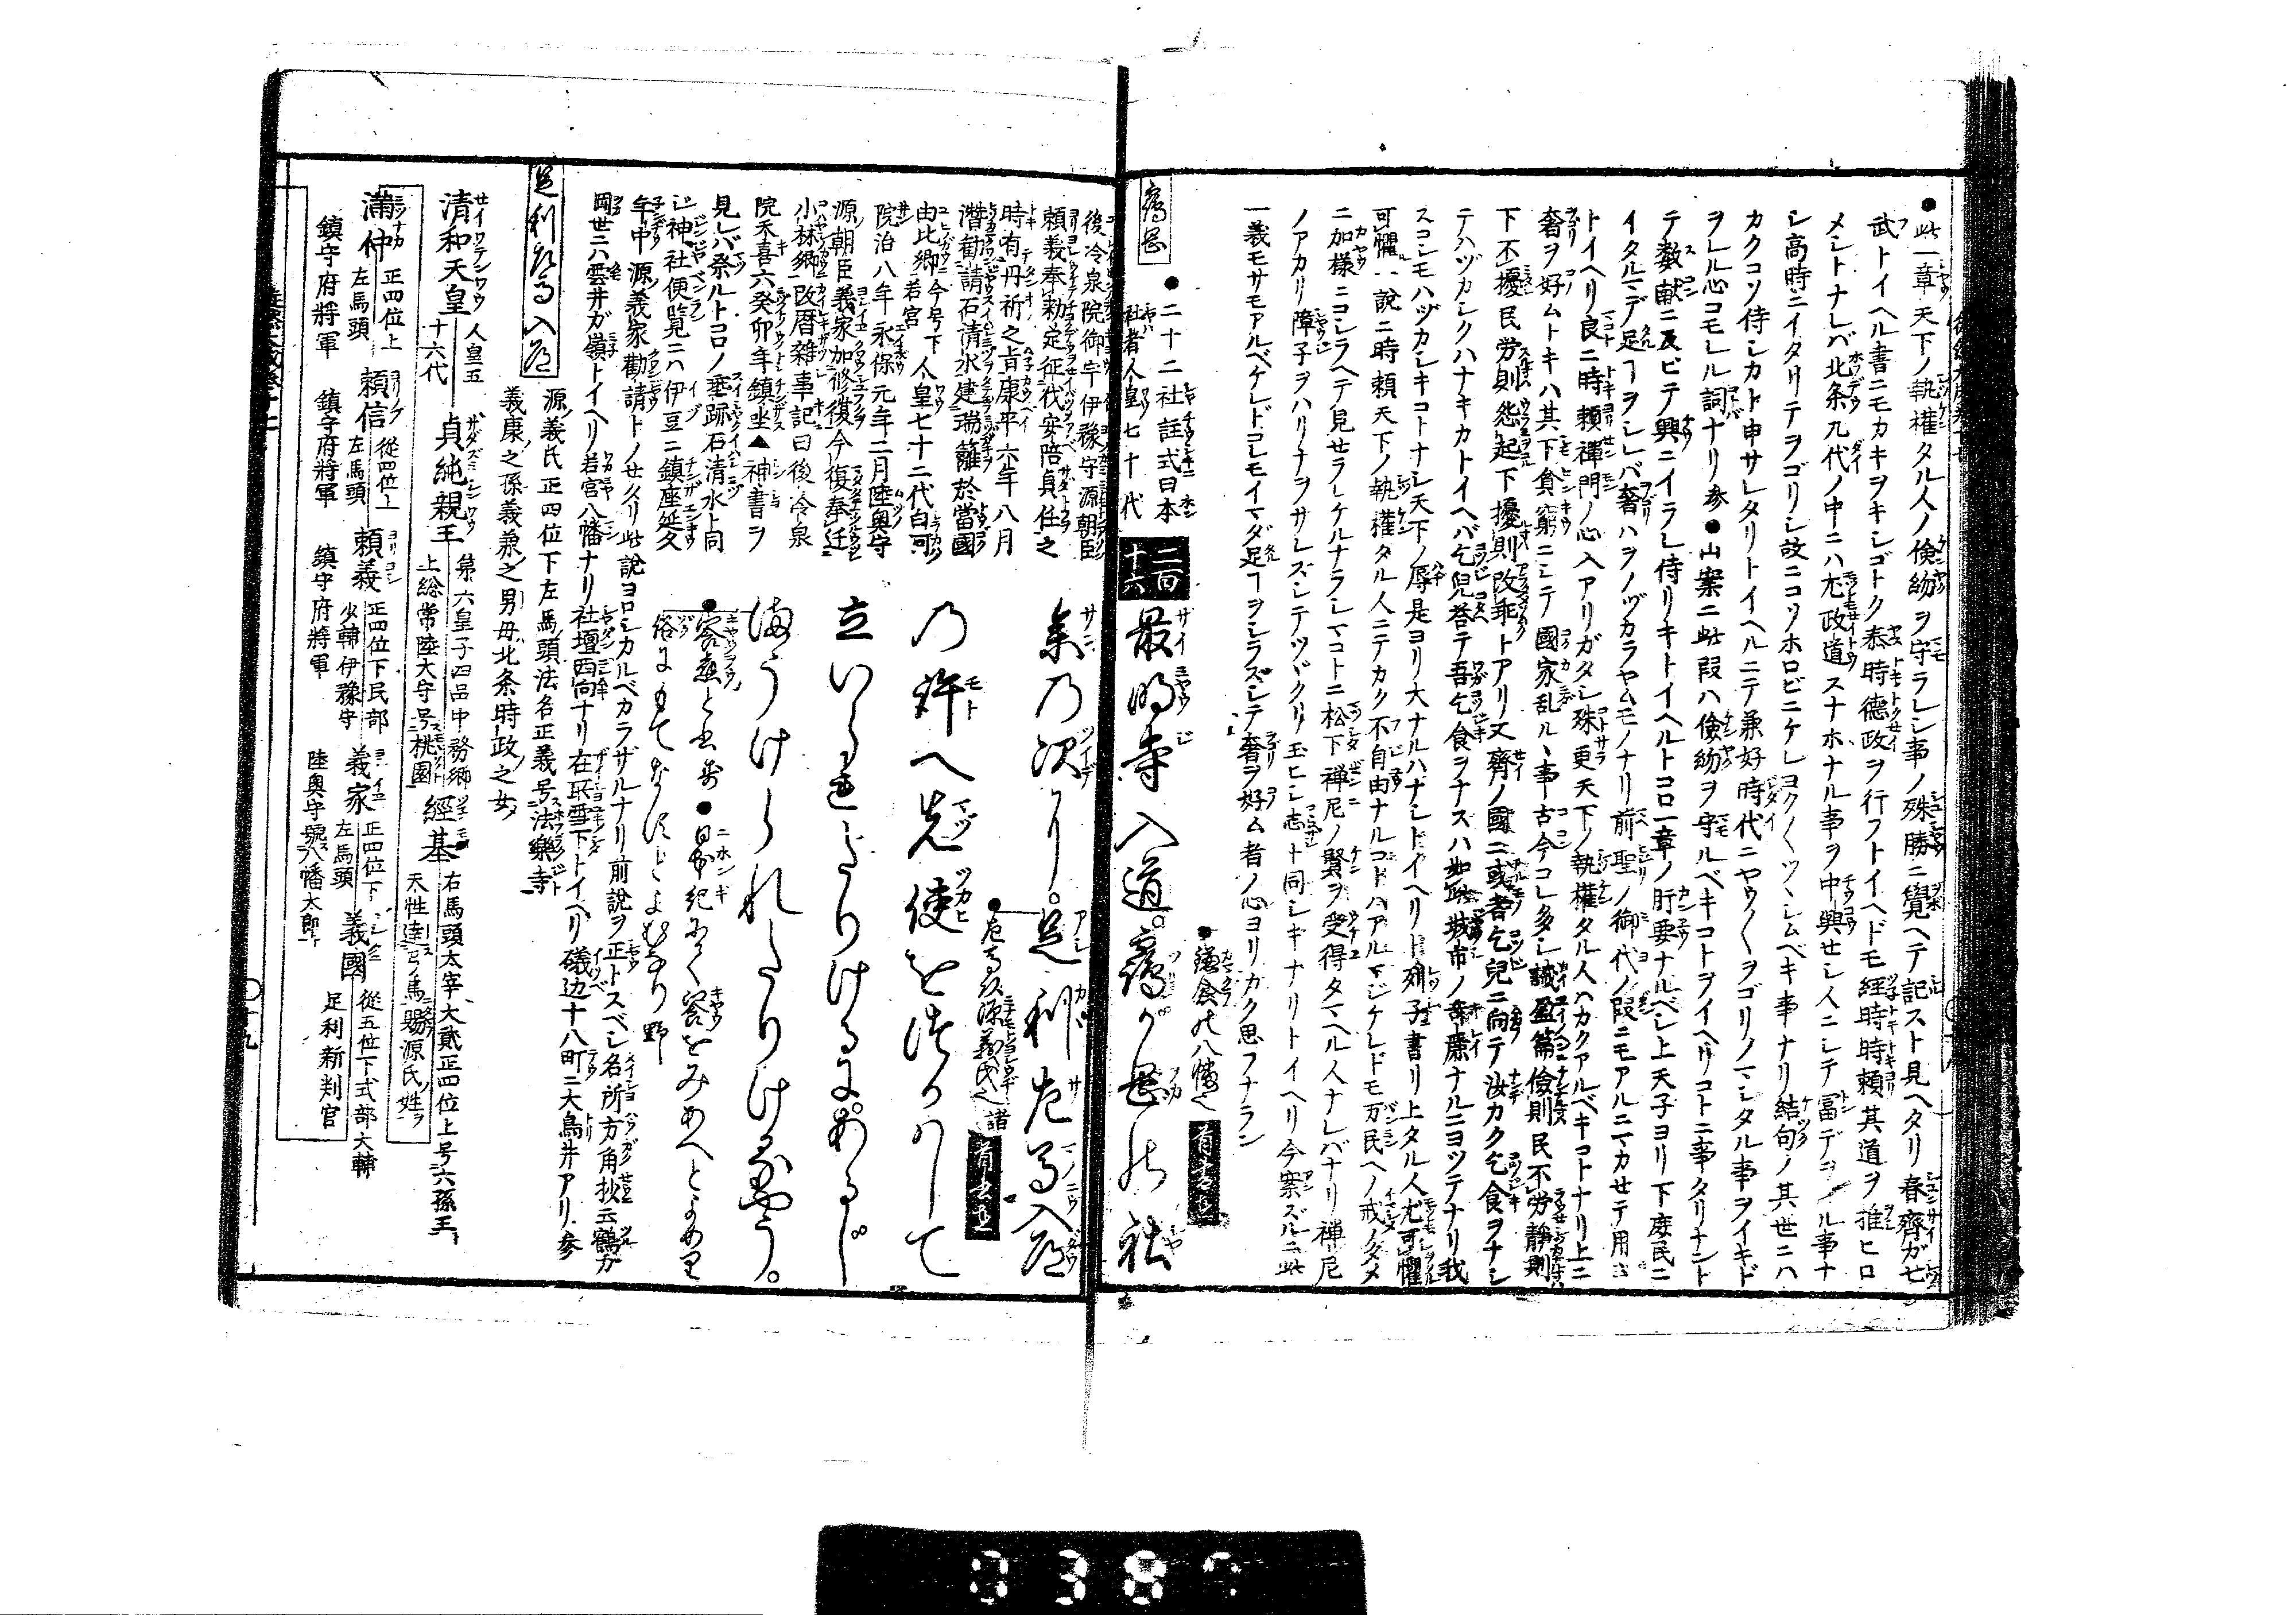 ●此一章天下ノ執權タル人ノ儉約ヲ守ラレシ事ノ殊勝ニ覺ヘテ記スト見ヘタリ春齊ガ七
武トイヘル書ニモカキヲキシゴトク泰時德政ヲ行フトイヘドモ経時時頼其道ヲ推ヒロ
メントナレバ北条九代ノ中ニハ尤政道スナホナル事ヲ中興せシ人ニシテ冨デヲゴル事ナ
シ高時ニイタリテヲゴリシ故ニコソホロビニケレヨク〱ツヽシムベキ事ナリ結句ノ其世ニハ
カクコソ侍シカト申サレタリトイヘルニテ兼好時代ニヤウ〱ヲゴリノマシタル事ヲイキド
ヲレル心コモレル詞ナリ参●山案ニ此段ハ儉約ヲ守ルベキコトヲイヘリコトニ事タリナント
テ数献ニ及ビテ興ニイラレ侍リキトイヘルトコロ一章ノ肝要ナルベシ上天子ヨリ下庶民ニ
イタルマデ足ヿヲシレバ奢ハヲノヅカラヤムモノナリ前聖ノ御代ノ段ニモアルニマカせテ用
トイヘリ良ニ時頼禪門ノ心入アリガタシ殊更天下ノ執權タル人ハカクアルベキコトナリ上ニ
奢ヲ好ムトキハ其下貧窮ニシテ國家乱ルヽ事古今コレ多シ誡盈篇儉則民不労靜則
下不擾民労則怨起下擾則政乖トアリ又齊ノ國ニ或者乞兒ニ向テ汝カク乞食ヲナシ
テハヅカシクハナキカトイヘバ乞兒荅テ吾乞食ヲナスハ如此城市ノ奇麗ナルニヨツテナリ我
スコシモハヅカシキコトナシ天下ノ辱是ヨリ大ナルハナシトイヘリト列子書リ上タル人尤可懼
可懼一說ニ時頼天下ノ執權タル人ニテカク不自由ナルコトハアルマジケレドモ万民ヘノ戒ノタメ
ニ加様ニコシラヘテ見せラレケルナラレマコトニ松下禅尼ノ賢ヲ受得タマヘル人ナレバナリ禅尼
ノアカリ障子ヲハリナヲサレズシテツヾクリ玉ヒシ志ト同シキナリトイヘリ今案ズルニ此
一義モサモアルベケレドコレモイマダ足ヿヲシラズシテ奢ヲ好ム者ノ心ヨリカク思フナラン
二百十六
最明寺入道。鶴が岡の社
●鎌倉の八幡也
鶴岡
●二十二社註式日本
社者人皇七十代
後冷泉院御宇伊豫守源朝臣
頼義奉勅定征伐安陪貞任之
時有丹祈之肯康平六年八月
潜勧請石清水建瑞籬於當國
由比郷今号下若宮人皇七十二代白河
院治八年永保元年二月陸奥守
源朝臣義家加修復今復奉迁
小林郷一改暦雑事記曰後冷泉
院天喜六癸卯年鎮坐▲神書ヲ
見レバ祭ルトコロノ垂跡石清水ト同
じ神社便覧ニハ伊豆ニ鎮座延久
年中源義家勸請トノせタリ此說ヨロシカルベカラザルナリ前說ヲ正トスベシ名所方角抄云鶴が
岡世ニハ雲井ガ嶺トイヘリ若宮八幡ナリ社壇西向ナリ在所雪下トイヘリ磯辺十八町ニ大鳥井アリ参
参の次に。足利左馬入道
●左馬頭源義氏也 諸
の許へ先使をつかはして
立いられたりけるに。あるじ
まうけられたりけるやう。
●饗應と書歟●日本紀にてく饗をみあへとよめり
俗にもてなしとよむなり 野
足利左馬入道
源ノ義氏正四位下左馬頭法名正義号法樂寺
義康之孫義兼之男母北条時政之女
清和天皇 人皇五十六代
貞純親王 第六皇子四品中務郷 上総常陸大守号桃園
經基 右馬頭太宰大貳正四位上号六孫王 天性達弓馬賜源氏姓
滿仲 正四位上 左馬頭 鎮守府將軍
頼信 從四位上 左馬頭 鎮守府將軍
頼義 正四位下民部少輔伊豫守 鎮守府將軍
義家 正四位下 左馬頭 陸奥守號八幡太郎
義國 從五位下式部大輔 足利新判官